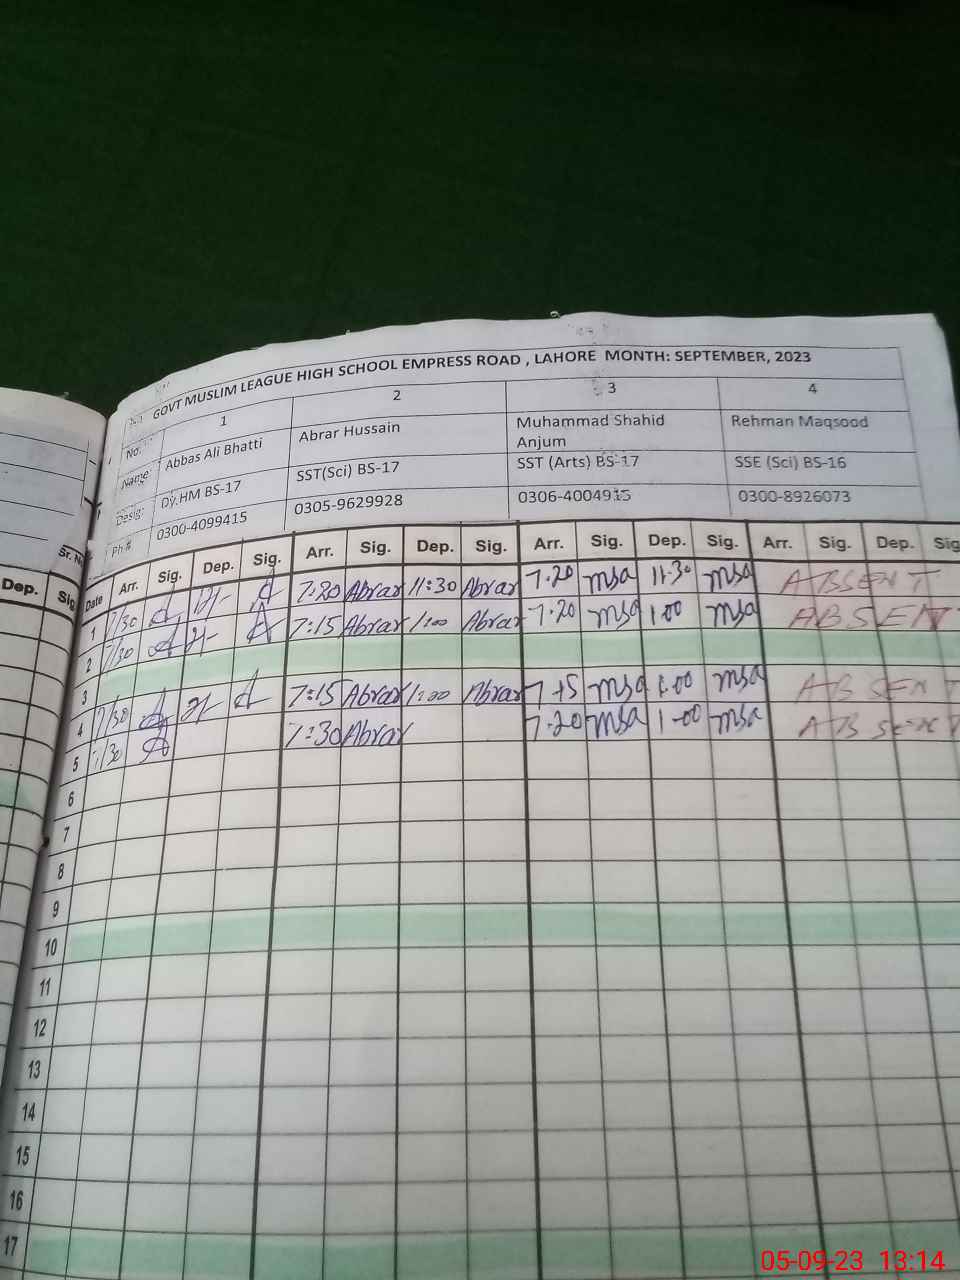 GOVT MUSLIM LEAGUE HIGH SCHOOL EMPRESS ROAD , LAHORE MONTH: SEPTEMBER, 2023
No: 1 2 3 4
Name: Abbas Ali Bhatti Abrar Hussain Muhammad Shahid Anjum Rehman Maqsood
Desig: Dy.HM BS-17 SST(Sci) BS-17 SST (Arts) BS-17 SSE (Sci) BS-16
Ph # 0300-4099415 0305-9629928 0306-4004915 0300-8926073
Dep. Sig Sr. N
Date Arr. Sig. Dep. Sig. Arr. Sig. Dep. Sig. Arr. Sig. Dep. Sig. Arr. Sig. Dep. Sig
1 7/30 7:20 Abrar 11:30 Abrar 7.20 msa 11.30 msa ABSENT
2 7/30 7:15 Abrar 1:00 Abrar 7.20 msa 1.00 msa ABSENT
3
4 7/30 7:15 Abrar 1:00 Abrar 7.15 msa 1.00 msa ABSENT
5 7/30 7:30 Abrar 7.20 msa 1.00 msa ABSENT
6
7
8
9
10
11
12
13
14
15
16
17
05-09-23 13:14